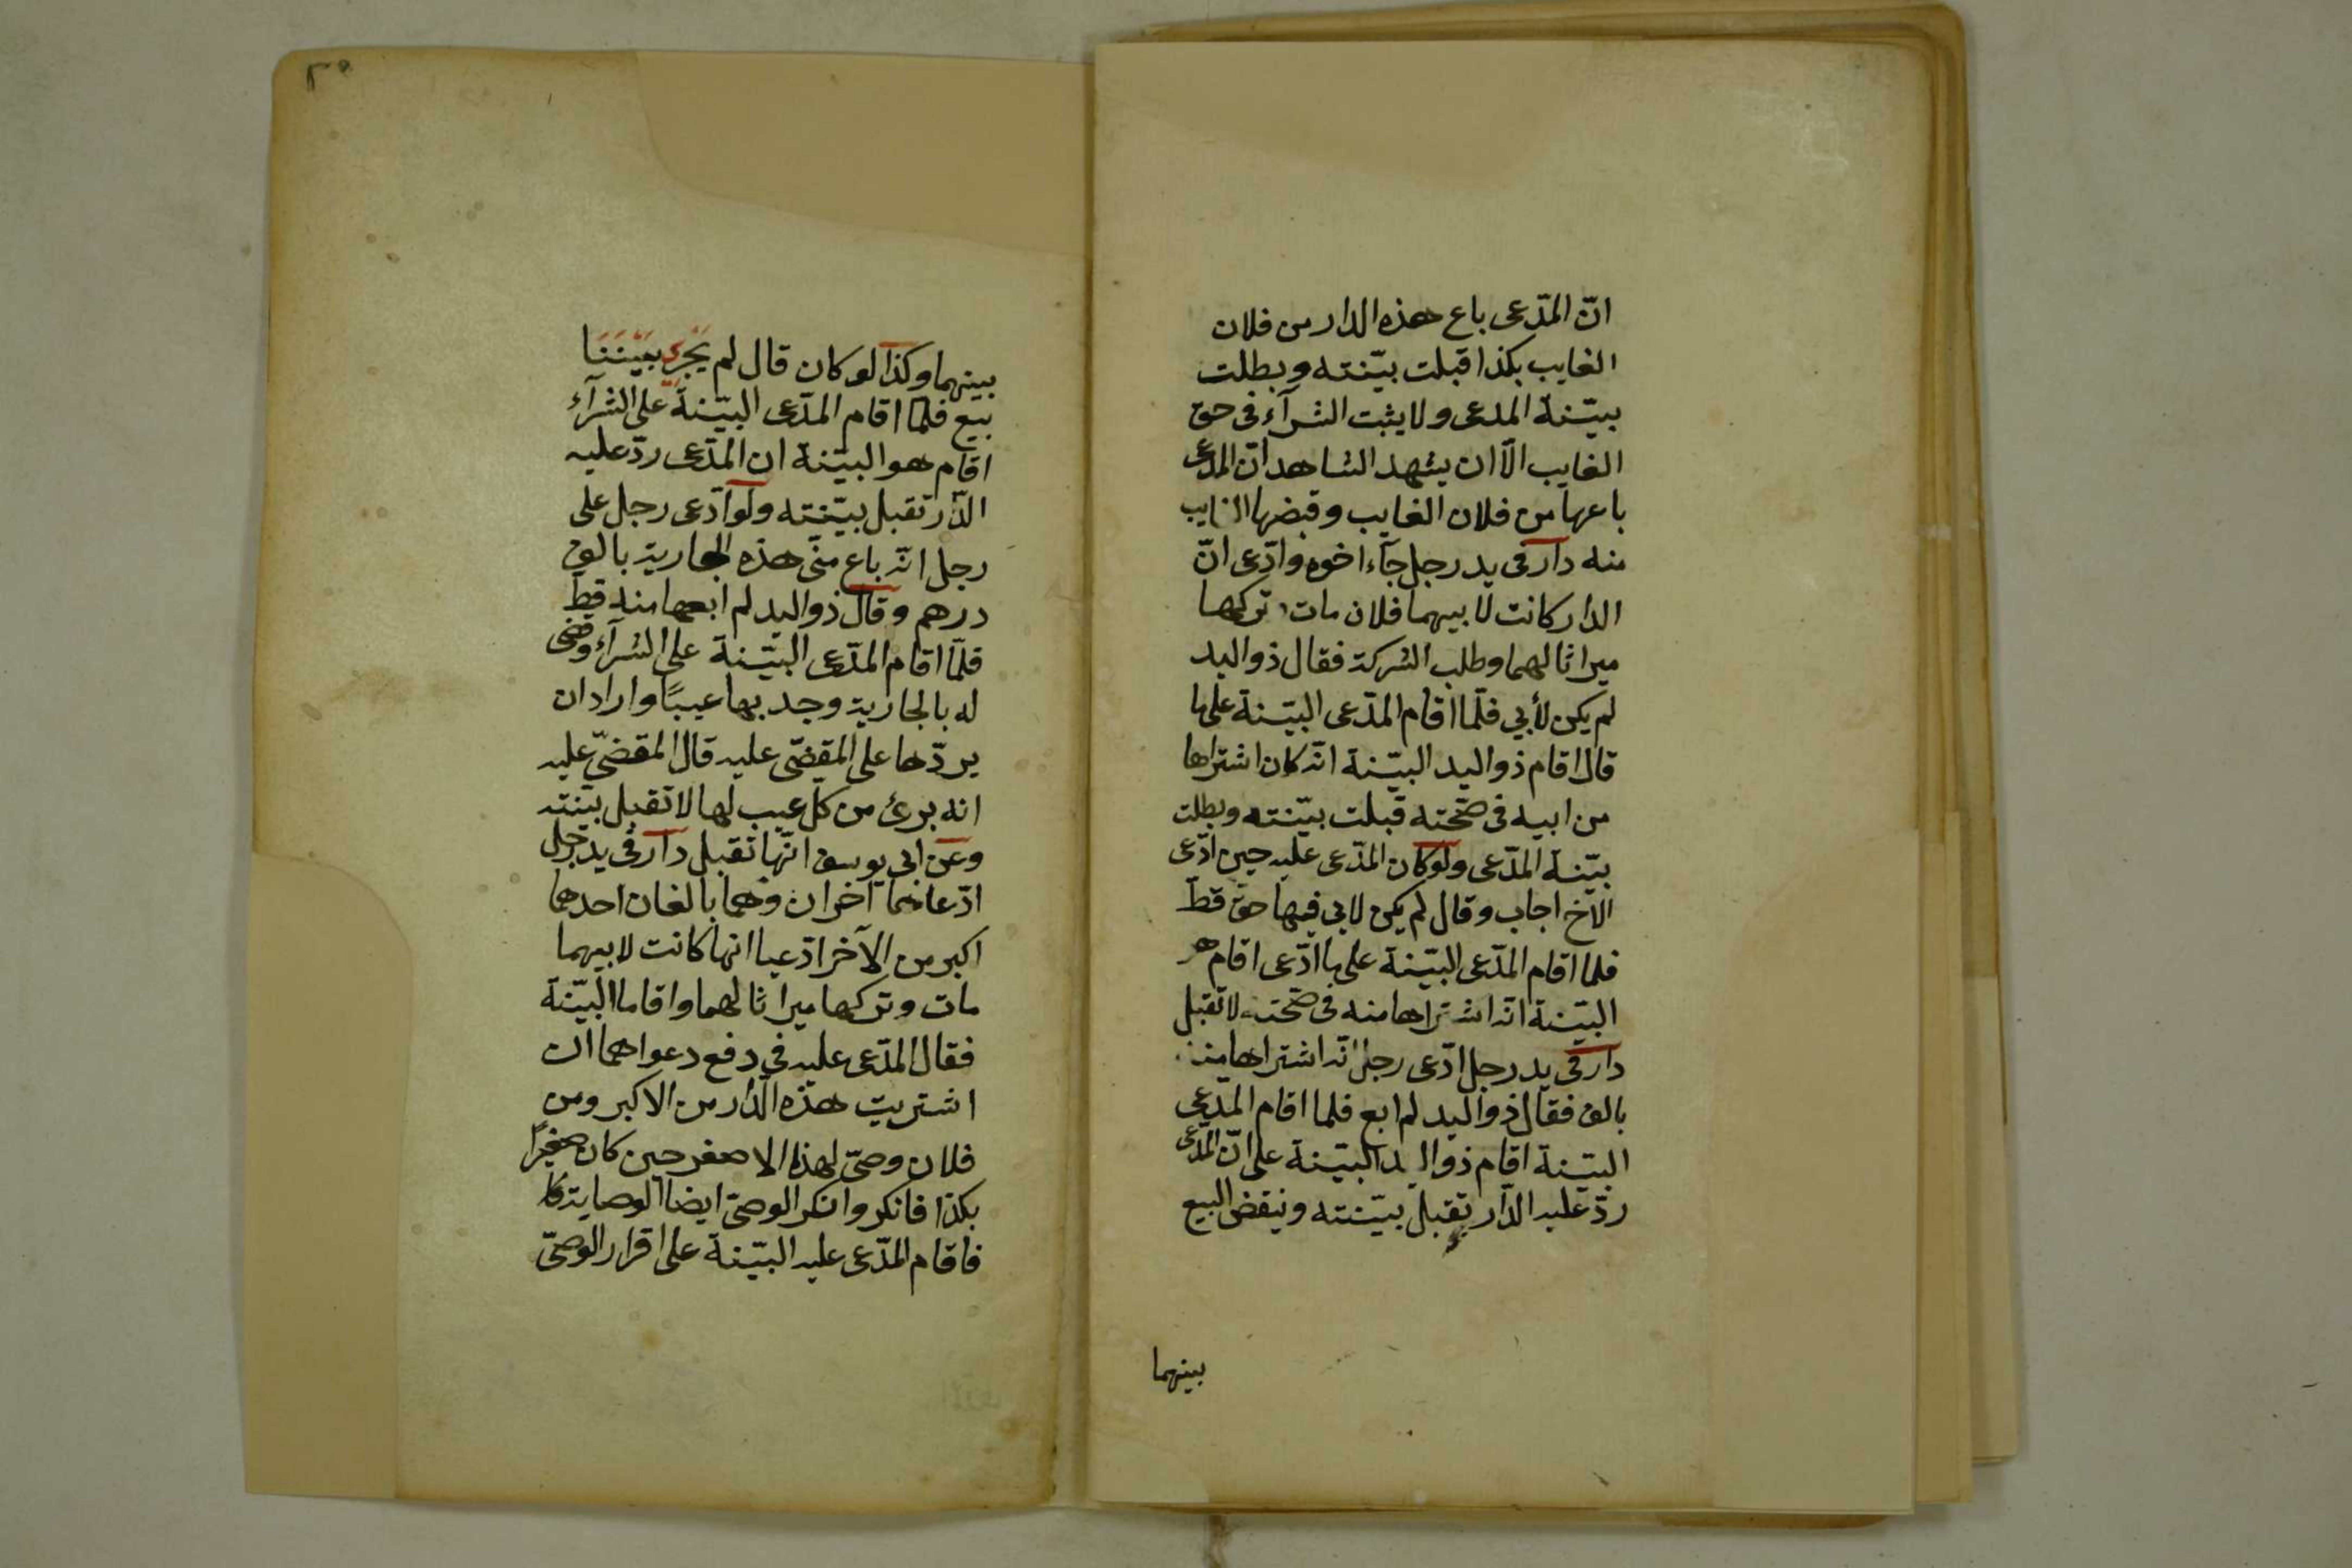 انّ المدّعى باع هذه الدار من فلان
الغايب بكذا قبلت بيّنته وبطلت
بيّنة المدعى ولا يثبت الشرآء فى حق
الغايب الّا ان يشهد الشاهد انّ المدّعى
باعها من فلان الغايب وقبضها الغايب
منه دار فى يد رجل جآء اخوه وادّعى انّ
الدار كانت لابيهما فلان مات وتركها
ميراثا لهما وطلب الشركة فقال ذو اليد
لم يكن لأبي فلمّا اقام المدّعى البيّنة على ما
قال اقام ذو اليد البيّنة انّه كان اشتراها
من ابيه فى صحّته قبلت بيّنته وبطلت
بيّنة المدّعى ولو كان المدّعى عليه حين ادّعى
الاخ اجاب وقال لم يكن لابى فيها حق قطّ
فلما اقام المدّعى البيّنة على ما ادّعى اقام هو
البيّنة انّه اشتراها منه فى صحّته لا تقبل
دار فى يد رجل ادّعى رجل انّه اشتراها منه
بالف فقال ذو اليد لم ابع فلما اقام المدّعى
البيّنة اقام ذو اليد البيّنة على انّ المدّعى
ردّ عليه الدّار تقبل بيّنته وينقض البيع
بينهما
٢٥
بينهما وكذا لو كان قال لم يجر بيننا
بيع فلمّا اقام المدّعى البيّنة على الشرآء
اقام هو البيّنة ان المدّعى ردّ عليه
الدّار تقبل بيّنته ولو ادّعى رجل على
رجل انّه باع منّى هذه الجارية بالف
درهم وقال ذو اليد لم ابعها منه قط
فلمّا اقام المدّعى البيّنة على الشرآء وقضى
له بالجارية وجد بها عيبًا واراد ان
يردّها على المقضّى عليه قال المقضىّ عليه
انه برئ من كل عيب لها لا تقبل بيّنته
وعن ابى يوسف انّها تقبل دار فى يد رجل
ادّعاها آخران وهما بالغان احدهما
اكبر من الآخر ادّعيا انها كانت لابيهما
مات وتركها ميراثا لهما واقاما البيّنة
فقال المدّعى عليه في دفع دعواهما ان
اشتريت هذه الدّار من الاكبر ومن
فلان وصىّ لهذا الاصغر حين كان صغيرًا
بكذا فانكر وانكر الوصىّ ايضا الوصاية
فاقام المدّعى عليه البيّنة على اقرار الوصىّ